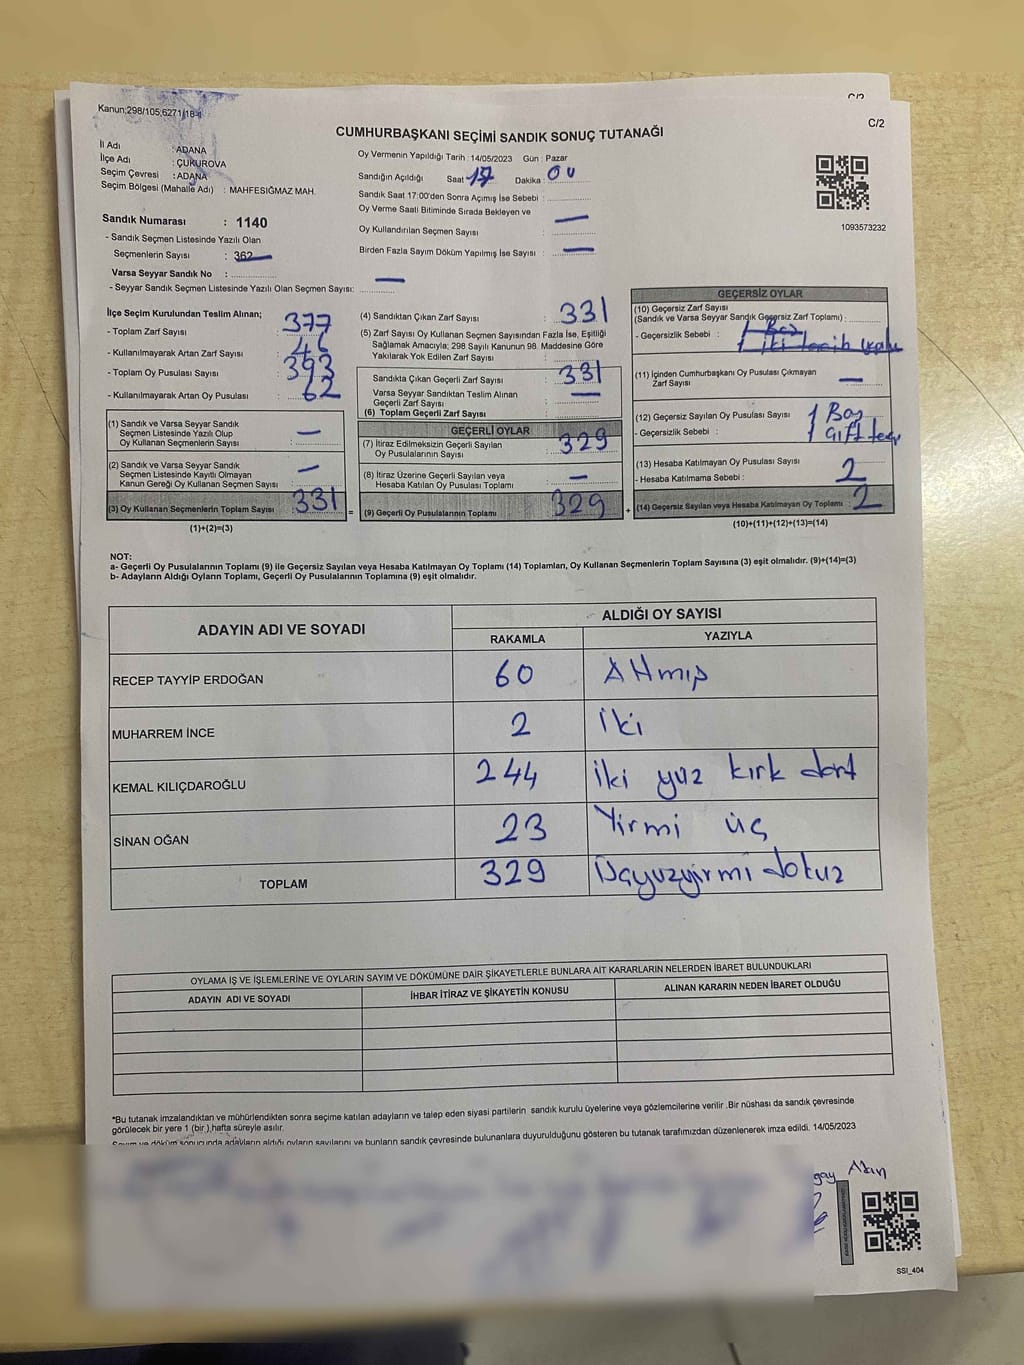 C/2
Kanun:298/105,6271/18-4
C/2
CUMHURBAŞKANI SEÇİMİ SANDIK SONUÇ TUTANAĞI
İl Adı : ADANA
İlçe Adı : ÇUKUROVA
Seçim Çevresi : ADANA
Seçim Bölgesi (Mahalle Adı) : MAHFESIĞMAZ MAH.
Sandık Numarası : 1140
- Sandık Seçmen Listesinde Yazılı Olan
Seçmenlerin Sayısı : 362
Varsa Seyyar Sandık No :
- Seyyar Sandık Seçmen Listesinde Yazılı Olan Seçmen Sayısı: —
Oy Vermenin Yapıldığı Tarih : 14/05/2023 Gün : Pazar
Sandığın Açıldığı Saat : 17 Dakika : 00
Sandık Saat 17:00'den Sonra Açımış İse Sebebi :
Oy Verme Saati Bitiminde Sırada Bekleyen ve
Oy Kullandırılan Seçmen Sayısı : —
Birden Fazla Sayım Döküm Yapılmış İse Sayısı : —
1093573232
İlçe Seçim Kurulundan Teslim Alınan;
- Toplam Zarf Sayısı : 377
- Kullanılmayarak Artan Zarf Sayısı : 46
- Toplam Oy Pusulası Sayısı : 393
- Kullanılmayarak Artan Oy Pusulası : 62
(1) Sandık ve Varsa Seyyar Sandık
Seçmen Listesinde Yazılı Olup
Oy Kullanan Seçmenlerin Sayısı : —
(2) Sandık ve Varsa Seyyar Sandık
Seçmen Listesinde Kayıtlı Olmayan
Kanun Gereği Oy Kullanan Seçmen Sayısı : —
(3) Oy Kullanan Seçmenlerin Toplam Sayısı : 331 =
(1)+(2)=(3)
(4) Sandıktan Çıkan Zarf Sayısı : 331
(5) Zarf Sayısı Oy Kullanan Seçmen Sayısından Fazla İse, Eşitliği
Sağlamak Amacıyla; 298 Sayılı Kanunun 98. Maddesine Göre
Yakılarak Yok Edilen Zarf Sayısı :
Sandıkta Çıkan Geçerli Zarf Sayısı : 331
Varsa Seyyar Sandıktan Teslim Alınan
Geçerli Zarf Sayısı : —
(6) Toplam Geçerli Zarf Sayısı :
GEÇERLİ OYLAR
(7) İtiraz Edilmeksizin Geçerli Sayılan
Oy Pusulalarının Sayısı : 329
(8) İtiraz Üzerine Geçerli Sayılan veya
Hesaba Katılan Oy Pusulası Toplamı : —
(9) Geçerli Oy Pusulalarının Toplamı : 329 +
GEÇERSİZ OYLAR
(10) Geçersiz Zarf Sayısı
(Sandık ve Varsa Seyyar Sandık Geçersiz Zarf Toplamı) :
- Geçersizlik Sebebi : 1 Boş
1 iki tercih
(11) İçinden Cumhurbaşkanı Oy Pusulası Çıkmayan
Zarf Sayısı : —
(12) Geçersiz Sayılan Oy Pusulası Sayısı : 1 Boş
- Geçersizlik Sebebi : 1 çift
(13) Hesaba Katılmayan Oy Pusulası Sayısı
- Hesaba Katılmama Sebebi : 2
(14) Geçersiz Sayılan veya Hesaba Katılmayan Oy Toplamı : 2
(10)+(11)+(12)+(13)=(14)
NOT:
a- Geçerli Oy Pusulalarının Toplamı (9) ile Geçersiz Sayılan veya Hesaba Katılmayan Oy Toplamı (14) Toplamları, Oy Kullanan Seçmenlerin Toplam Sayısına (3) eşit olmalıdır. (9)+(14)=(3)
b- Adayların Aldığı Oyların Toplamı, Geçerli Oy Pusulalarının Toplamına (9) eşit olmalıdır.
ADAYIN ADI VE SOYADI ALDIĞI OY SAYISI
RAKAMLA YAZIYLA
RECEP TAYYİP ERDOĞAN 60 Altmış
MUHARREM İNCE 2 iki
KEMAL KILIÇDAROĞLU 244 iki yüz kırk dört
SİNAN OĞAN 23 Yirmi üç
TOPLAM 329 Üçyüzyirmi dokuz
OYLAMA İŞ VE İŞLEMLERİNE VE OYLARIN SAYIM VE DÖKÜMÜNE DAİR ŞİKAYETLERLE BUNLARA AİT KARARLARIN NELERDEN İBARET BULUNDUKLARI
ADAYIN ADI VE SOYADI İHBAR İTİRAZ VE ŞİKAYETİN KONUSU ALINAN KARARIN NEDEN İBARET OLDUĞU
*Bu tutanak imzalandıktan ve mühürlendikten sonra seçime katılan adayların ve talep eden siyasi partilerin sandık kurulu üyelerine veya gözlemcilerine verilir .Bir nüshası da sandık çevresinde
görülecek bir yere 1 (bir ) hafta süreyle asılır.
Sayım ve döküm sonucunda adayların aldığı oyların sayılarını ve bunların sandık çevresinde bulunanlara duyurulduğunu gösteren bu tutanak tarafımızdan düzenlenerek imza edildi. 14/05/2023
gay
SSI_404